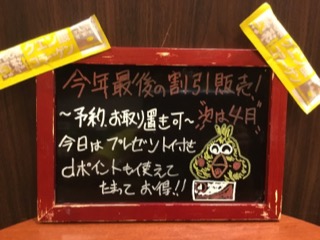 今年最後の割引販売!
~予約、お取り置きも可~ 次は4月
今日はプレゼントイッセ
dポイントも使えて
たまって お得!!